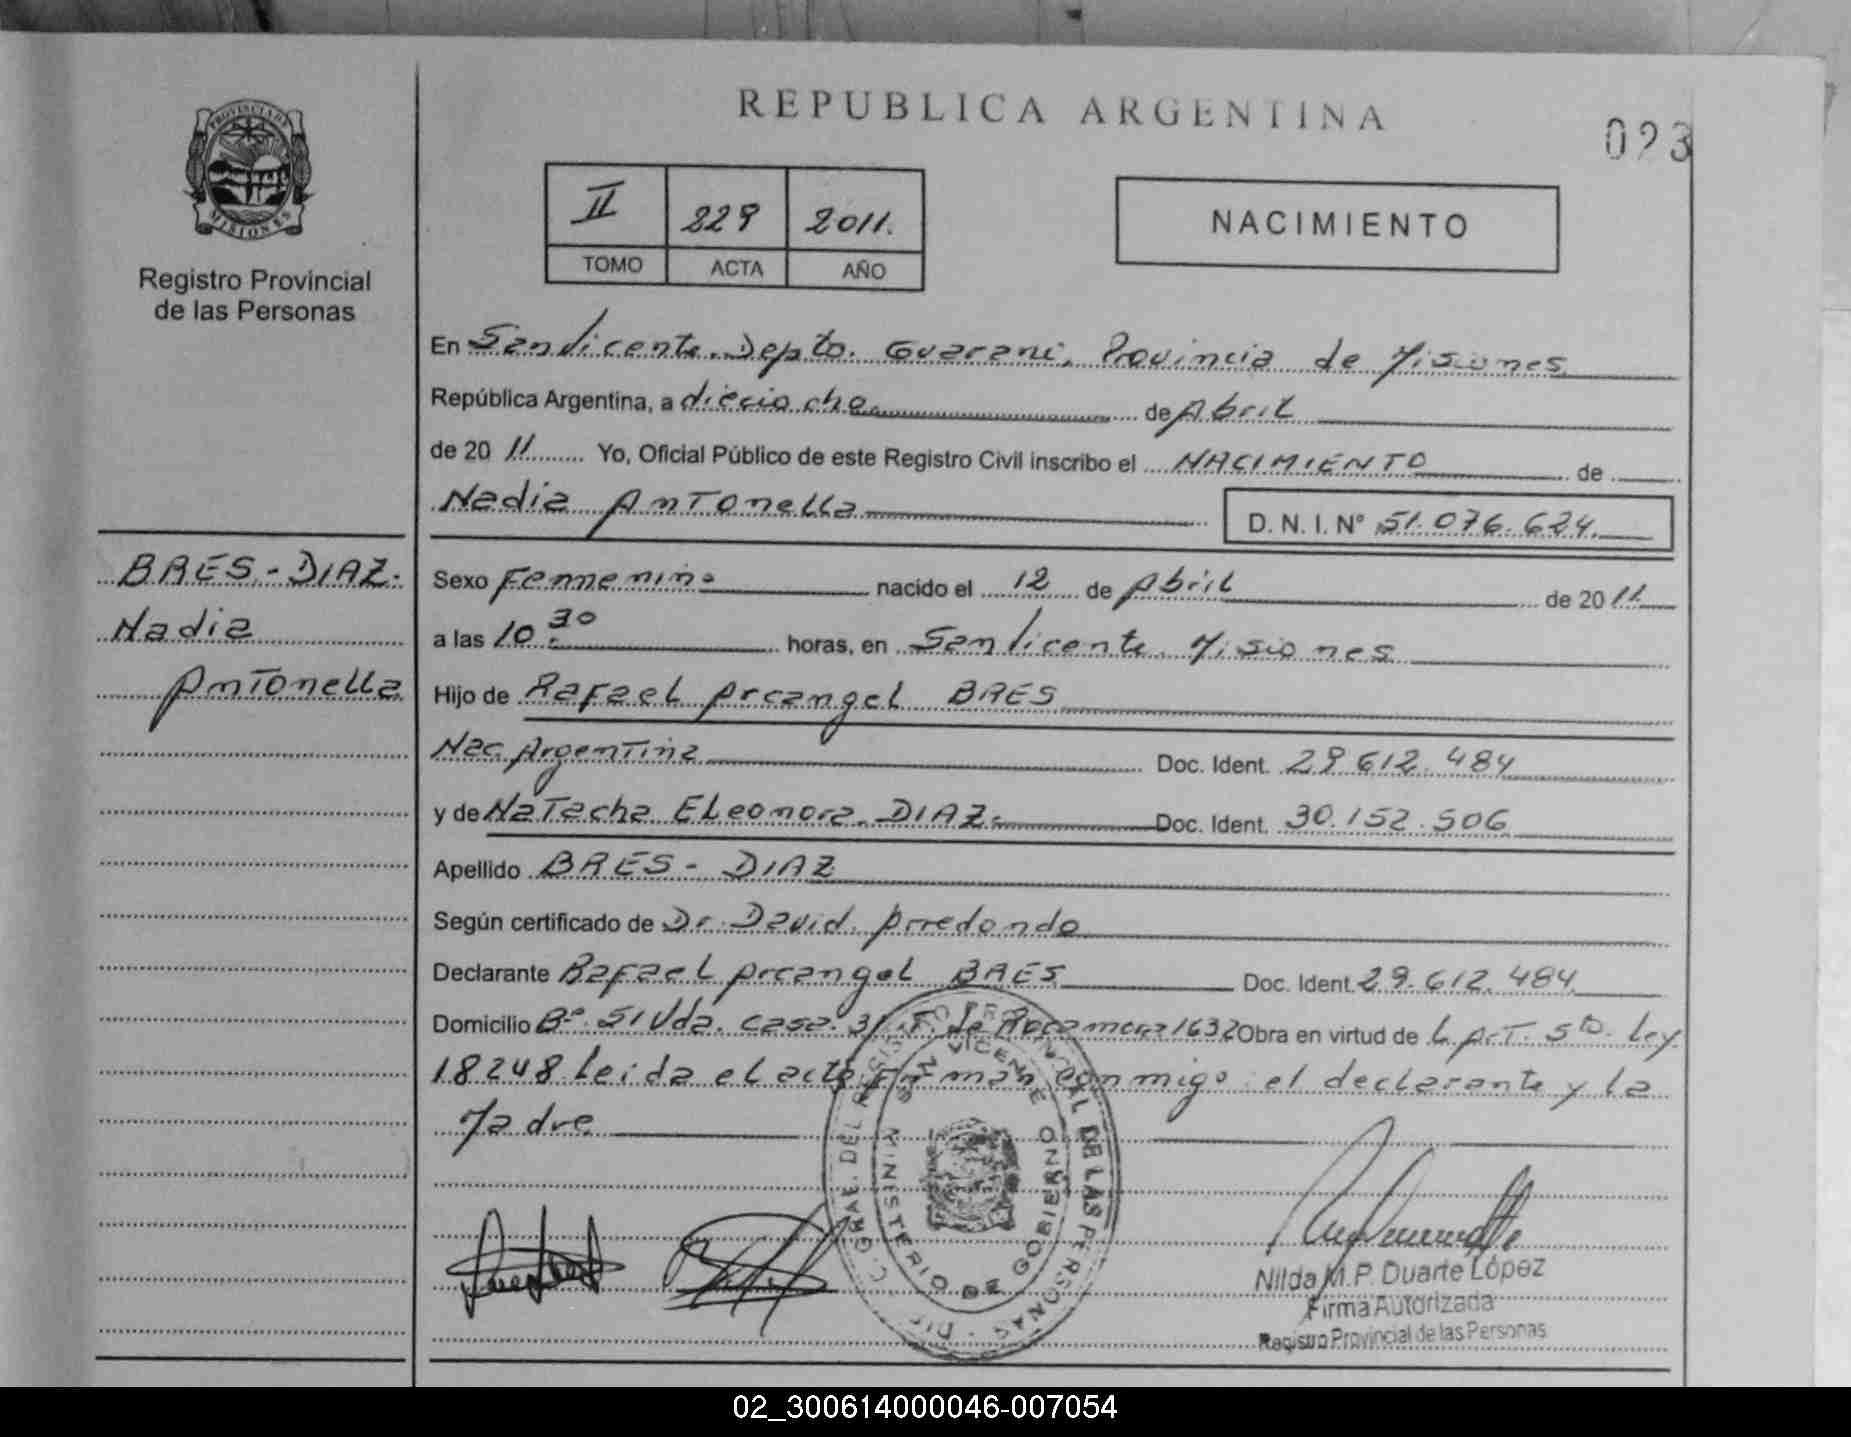 REPUBLICA ARGENTINA
093
PROVINCIA DE
MISIONES
Registro Provincial
de las Personas
II 229 2011.
TOMO ACTA AÑO
NACIMIENTO
En San Vicente. Depto. Guarani, Provincia de Misiones
República Argentina, a dieciocho de Abril
de 20 11 Yo, Oficial Público de este Registro Civil inscribo el NACIMIENTO de
Nadia Antonella D. N. I. Nº 51.076.624.
BRES - DIAZ.
Nadia
Antonella
Sexo Femenino nacido el 12 de Abril de 20 11
a las 10:30 horas, en San Vicente. Misiones
Hijo de Rafael Arcangel BRES
Nac. Argentina Doc. Ident. 29.612.484
y de Natacha Eleonora DIAZ. Doc. Ident. 30.152.506
Apellido BRES - DIAZ
Según certificado de Dr. David Arredondo
Declarante Rafael Arcangel BRES Doc. Ident. 29.612.484
Domicilio Bº. 51 Vdas. casa. 31 F. de Rocamora 1632 Obra en virtud de L Art. 5to. Ley
18248 Leida el acta Firman conmigo: el declarante y la
Madre
DIC. GRAL. DEL REGISTRO PROVINCIAL DE LAS PERSONAS
SAN VICENTE
MINISTERIO DE GOBIERNO
Nilda M.P. Duarte López
Firma Autorizada
Registro Provincial de las Personas
02_300614000046-007054